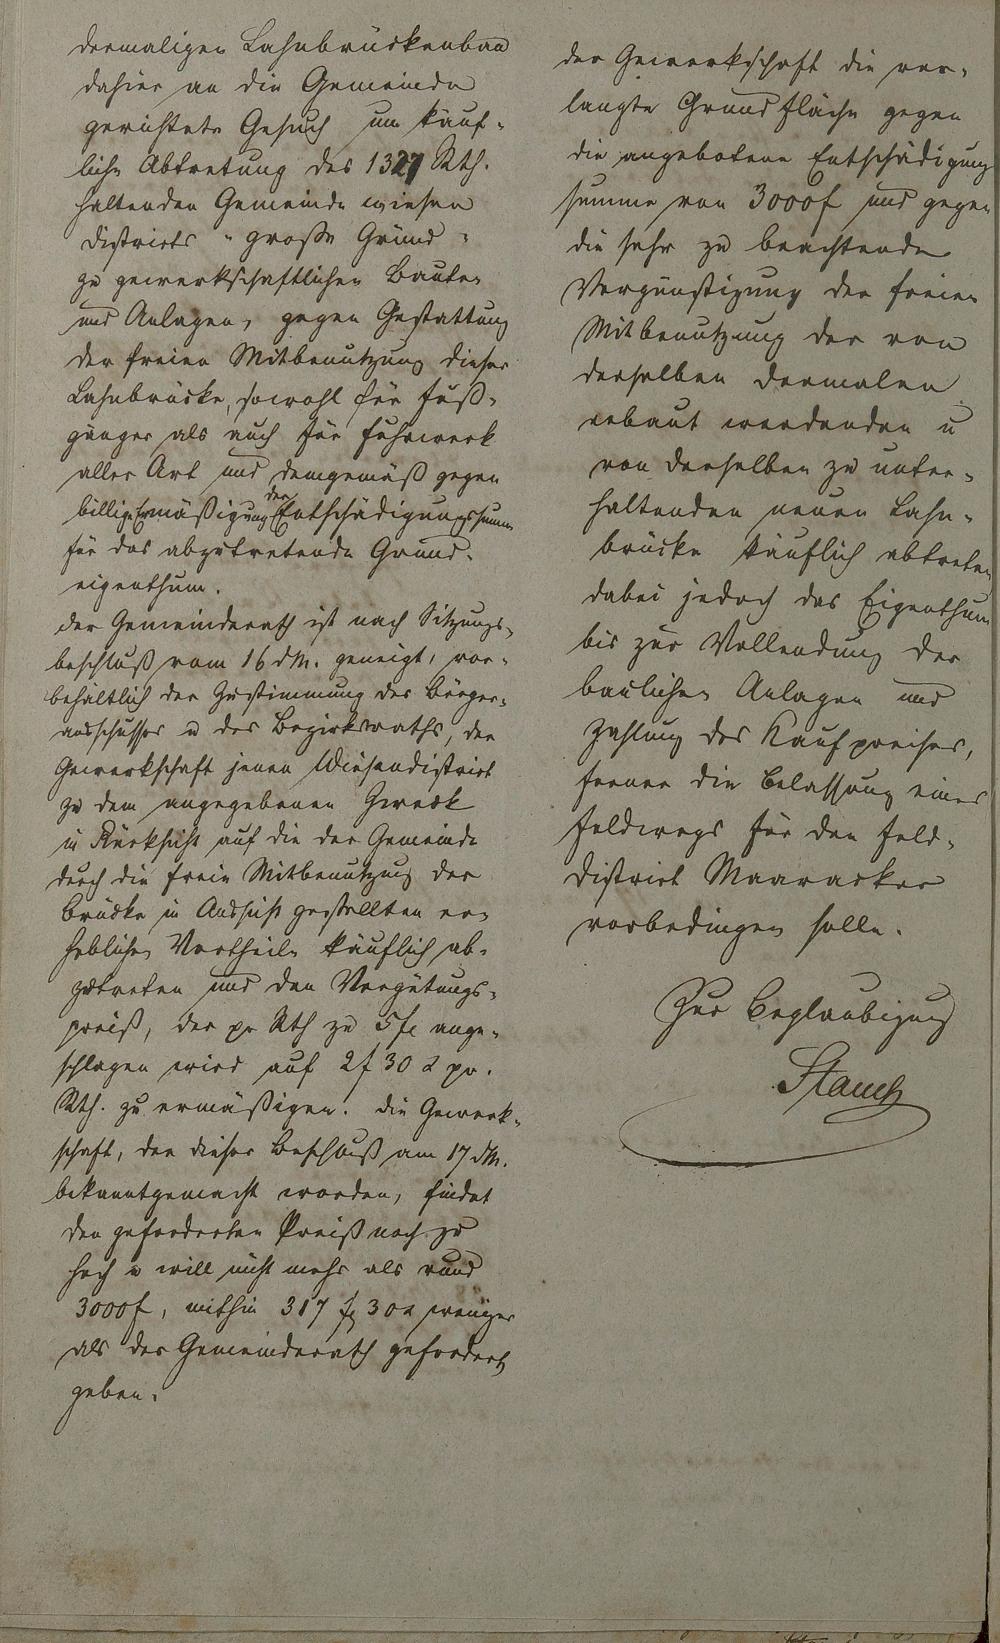 dermaligen Lahnbrückenbau
dahier an die Gemeinde
gerichtete Gesuch um käuf-
liche Abtretung des 1327 Rth.
haltenden Gemeinde wiesen
Districts "große Gründ"
zu gewerkschaftlichen Bauten
und Anlagen, gegen Gestattung
der freien Mitbenutzung dieser
Lahnbrücke, sowohl für Fuß-
gänger als auch für Fuhrwerk
aller Art und demgemäß gegen
billige Ermäßigung der Entschädigungssumme
für das abzutretende Grund-
eigenthum.
Der Gemeinderath ist nach Sitzungs-
beschluß vom 16 dM. geneigt, vor-
behältlich der Zustimmung des Bürger-
ausschusses u des Bezirksraths, der
Gewerkschaft jenen Wiesendistrict
zu dem angegebenen Zweck
in Rücksicht auf die der Gemeinde
durch die freie Mitbenutzung der
Brücke in Aussicht gestellten er-
heblichen Vortheile käuflich ab-
zutreten und den Vergütungs-
preiß, der pr Rth zu 5 f ange-
schlagen wird auf 2 f 30 x pr.
Rth. zu ermäßigen. Die Gewerk-
schaft, der dieser Beschluß am 17 dM.
bekanntgemacht worden, findet
den geforderten Preiß noch zu
hoch u will nicht mehr als rund
3000 f, mithin 317 f 30 x weniger
als der Gemeinderath gefordert,
geben.
der Gewerkschaft die ver-
langte Grundfläche gegen
die angebotene Entschädigungs
summe von 3000 f und gegen
die sehr zu beachtende
Vergünstigung der freien
Mitbenutzung der von
derselben dermalen
erbaut werdenden u
von derselben zu unter-
haltenden neuen Lahn-
brücke käuflich abtreten
dabei jedoch das Eigenthum
bis zur Vollendung der
baulichen Anlagen und
Zahlung des Kaufpreises,
ferner die Belassung eines
Feldwegs für den Feld-
district Maaracker
vorbedingen solle.
Zur Beglaubigung
Stauch